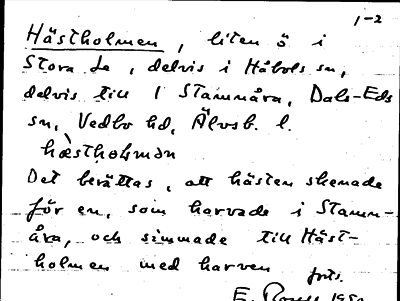 1-2
Hästholmen, liten ö i
Stora Le, delvis i Håbols sn,
delvis till 1 Stamnåra, Dals-Eds
sn, Vedbo hd, Älvsb. l.
hæstholmən
Det berättas, att hästen skenade
för en, som harvade i Stamn-
åra, och simmade till Häst-
holmen med harven forts.
E.